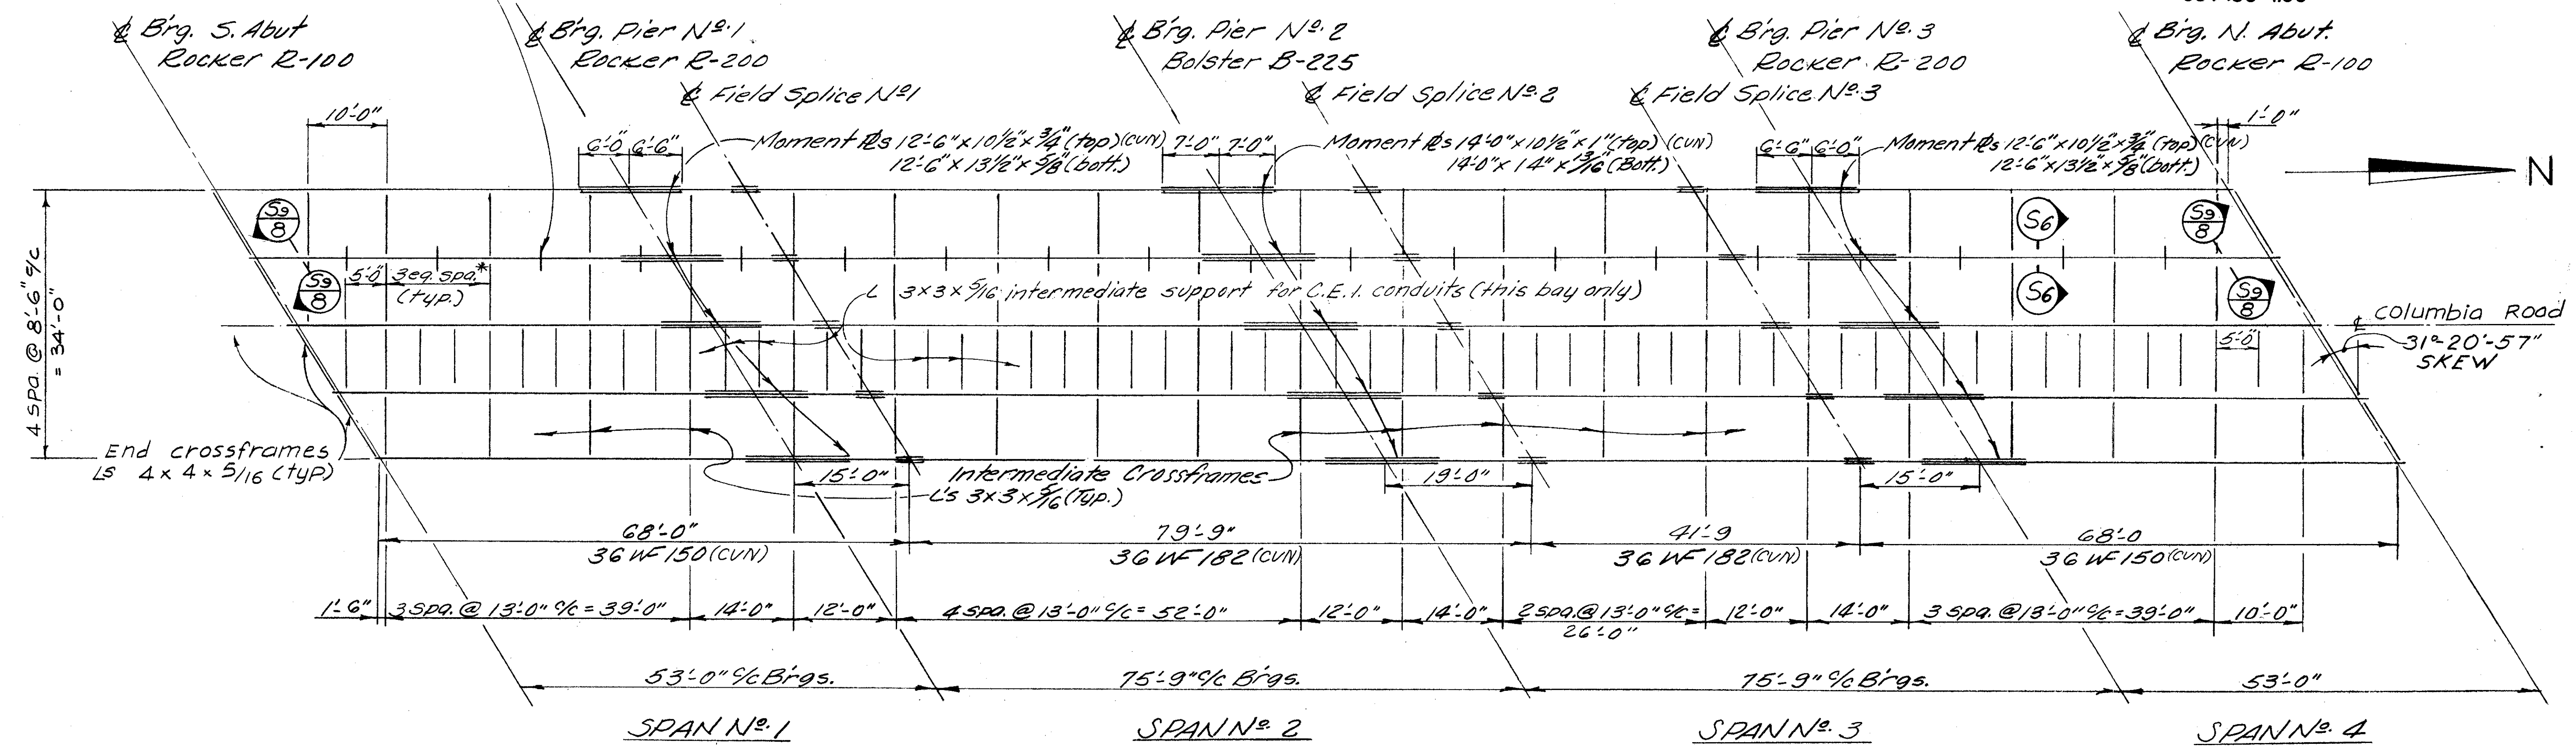 ℄ Brg. S. Abut
Rocker R-100
℄ Brg. Pier Nº.1
Rocker R-200
℄ Field Splice Nº1
℄ Brg. Pier Nº.2
Bolster B-225
℄ Field Splice Nº.2
℄ Brg. Pier Nº.3
Rocker R-200
℄ Field Splice Nº.3
℄ Brg. N. Abut.
Rocker R-100
10'-0"
6'-0" 6'-6"
Moment ℞s 12'-6" x 10½" x ¾" (top)(CVN)
12'-6" x 13½" x ⅝" (bott.)
7'-0" 7'-0"
Moment ℞s 14'-0" x 10½" x 1" (top) (CVN)
14'-0" x 14" x 13/16" (Bott.)
6'-6" 6'-0"
Moment ℞s 12'-6" x 10½" x ¾" (top)(CVN)
12'-6" x 13½" x ⅝" (bott.)
1'-0"
N
S9
8
S6
S9
8
S9
8
5'-0" 3 eq. spa.*
(typ.)
L 3x3x5/16 intermediate support for C.E.I. conduits (this bay only)
S6
S9
8
4 spa. @ 8'-6" c/c
= 34'-0"
℄ Columbia Road
31°-20'-57"
SKEW
5'-0"
End crossframes
Ls 4 x 4 x 5/16 (typ)
15'-0"
Intermediate Crossframes
L's 3x3x5/16 (Typ.)
19'-0"
15'-0"
68'-0"
36 WF 150 (CVN)
79'-9"
36 WF 182 (CVN)
41'-9
36 WF 182 (CVN)
68'-0
36 WF 150 (CVN)
1'-6" 3 spa. @ 13'-0" c/c = 39'-0" 14'-0" 12'-0" 4 spa. @ 13'-0" c/c = 52'-0" 12'-0" 14'-0" 2 spa. @ 13'-0" c/c = 26'-0" 12'-0" 14'-0" 3 spa. @ 13'-0" c/c = 39'-0" 10'-0"
53'-0" c/c Brgs.
75'-9" c/c Brgs.
75'-9" c/c Brgs.
53'-0"
SPAN Nº.1
SPAN Nº.2
SPAN Nº.3
SPAN Nº.4